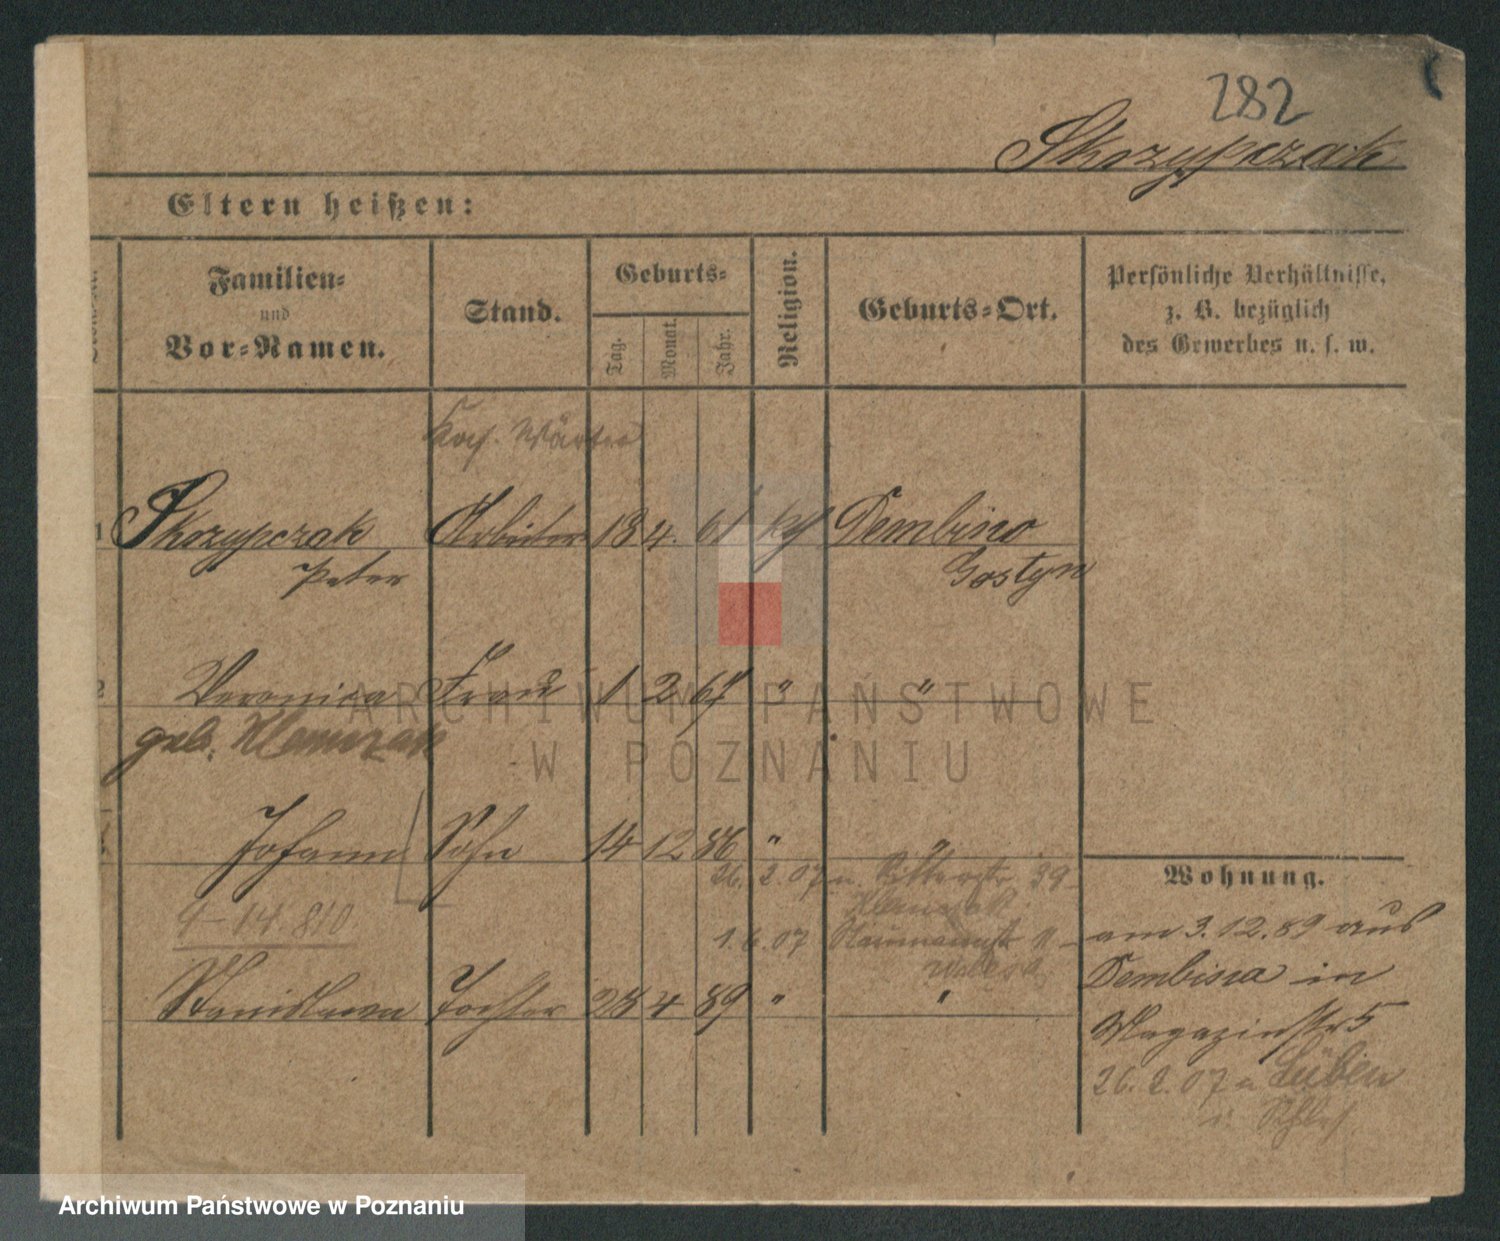 282
Skozypczak
Eltern heißen:
Familien-
und
Vor-Namen.
Stand.
Geburts-
Tag.
Monat.
Jahr.
Religion.
Geburts-Ort.
Persönliche Verhältnisse,
z. B. bezüglich
des Gewerbes u. s. w.
Wärter
1 Skozypczak Arbeiter 13 4. 61 kath Dembino
Peter Gostyn
2 Veronica Frau 1 2 67 " "
geb. Klamczak
Johann Sohn 14 12 86 " "
26. 2. 07 n. Ritterstr 39
4-14.810
1. 6. 07 Naumannstr
Stanislawa Tochter 28 4 89 " "
Wohnung.
am 3.12.89 aus
Dembina in
Magazinstr 5
26. 2. 07 n Lüben
i. Schles
ARCHIWUM PAŃSTWOWE
W POZNANIU
Archiwum Państwowe w Poznaniu